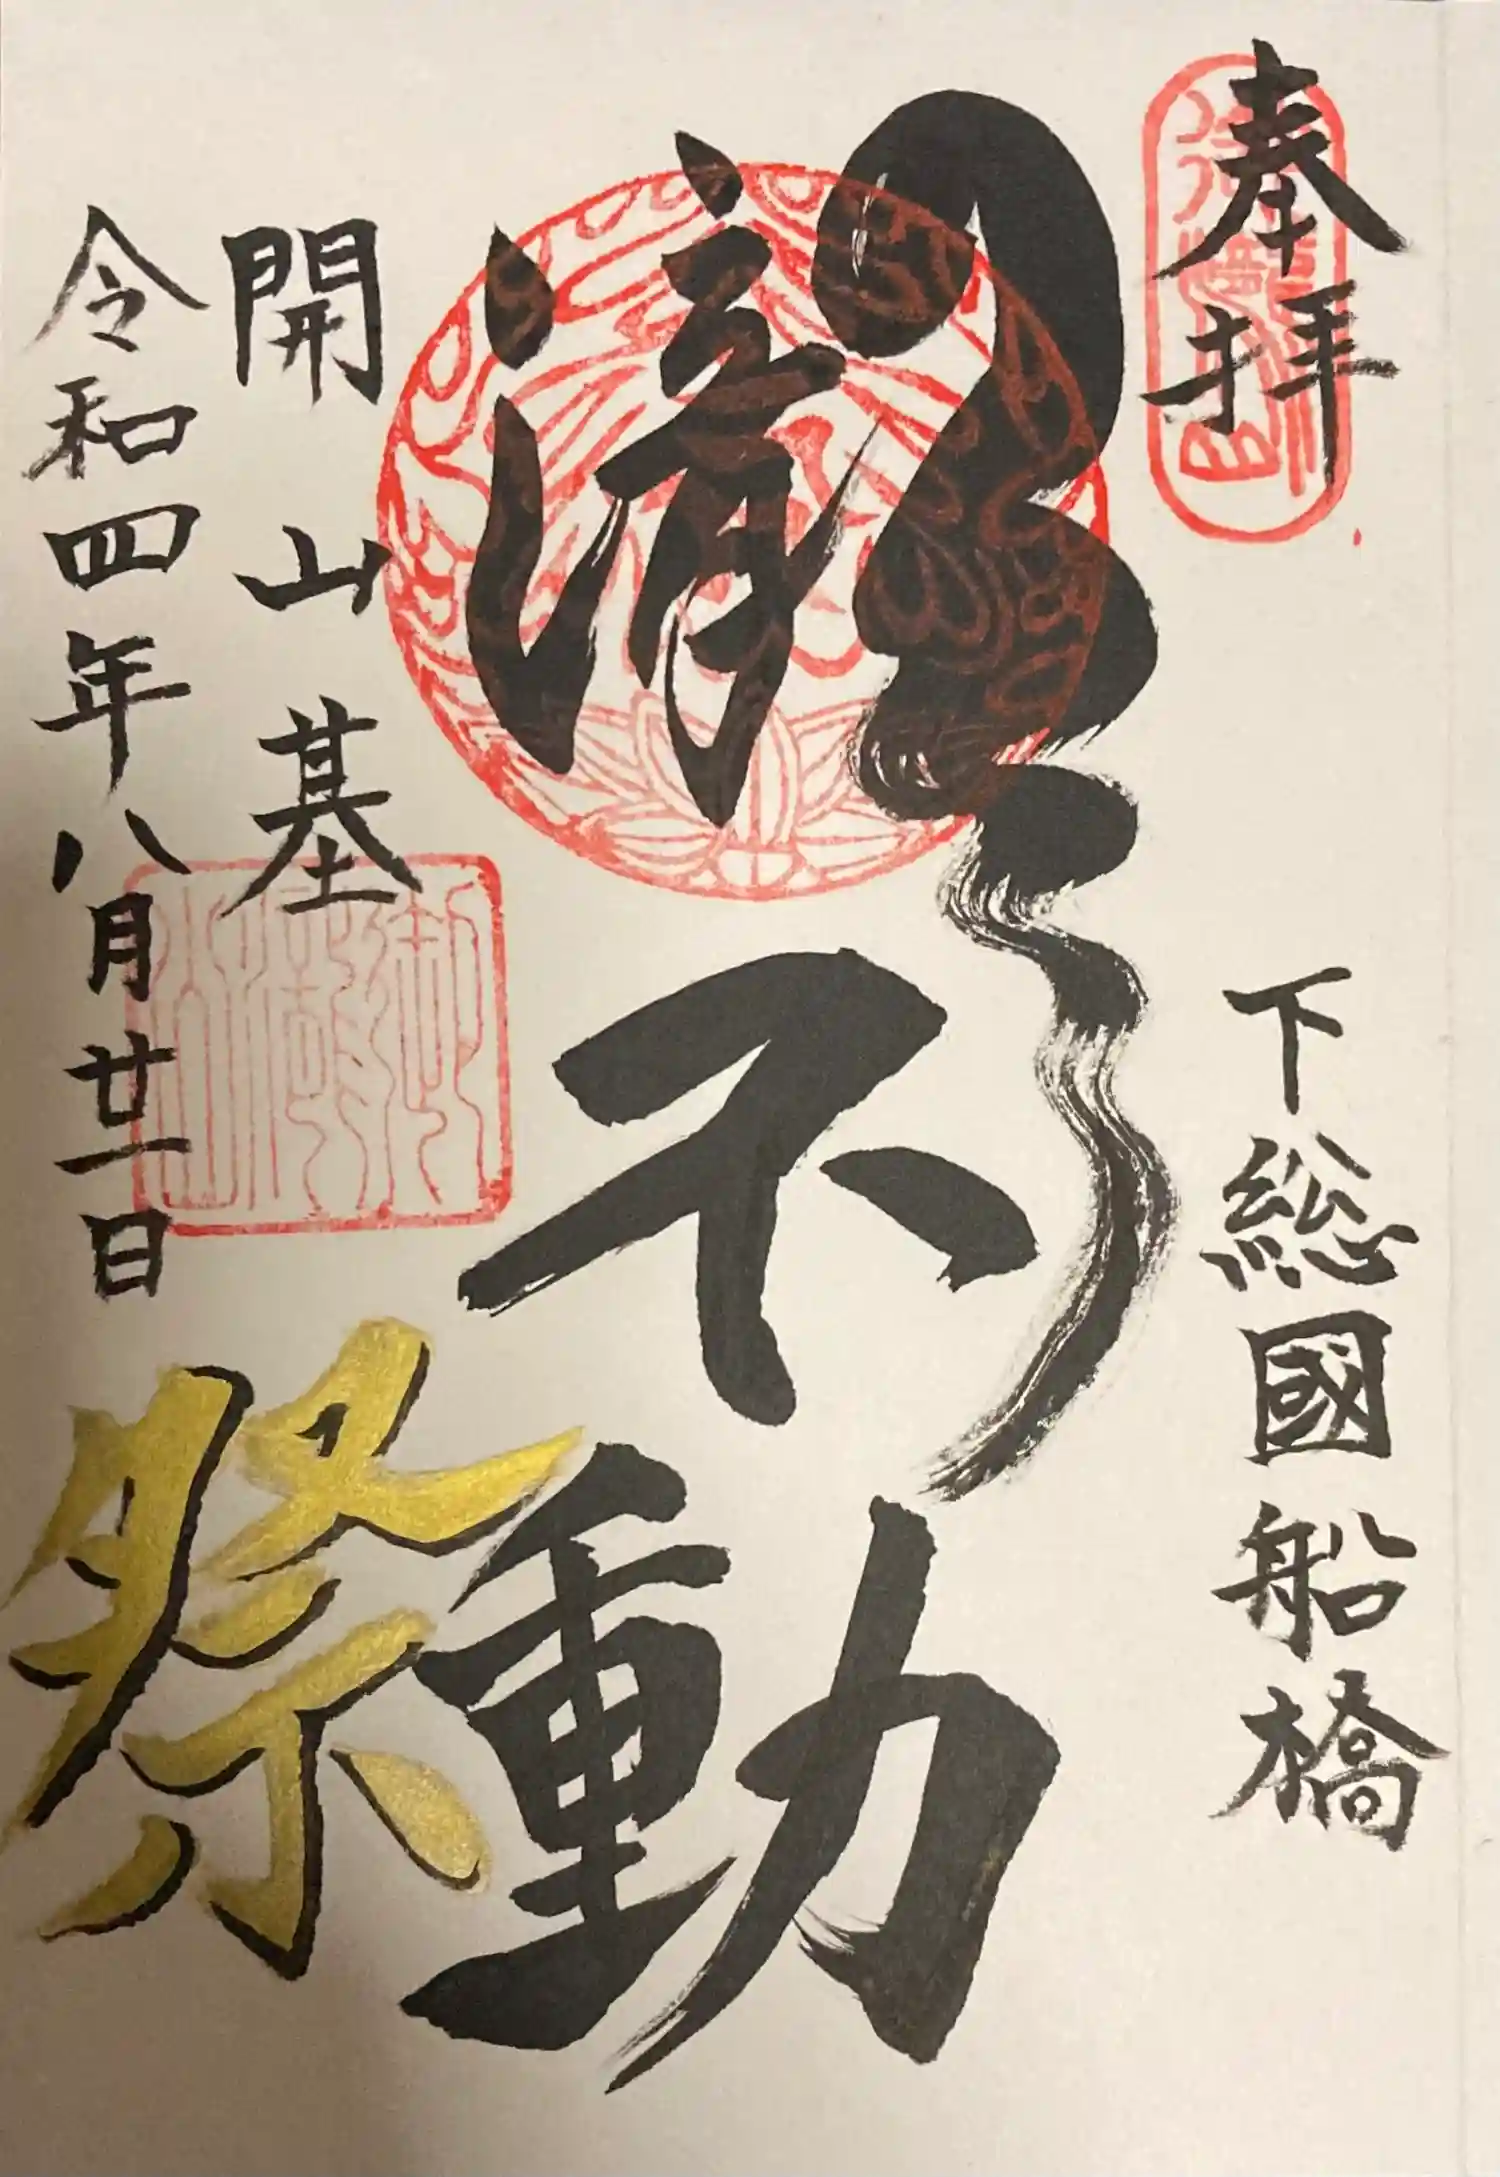 奉拝
下総國船橋
瀧不動
開山基
祭
令和四年八月廿一日